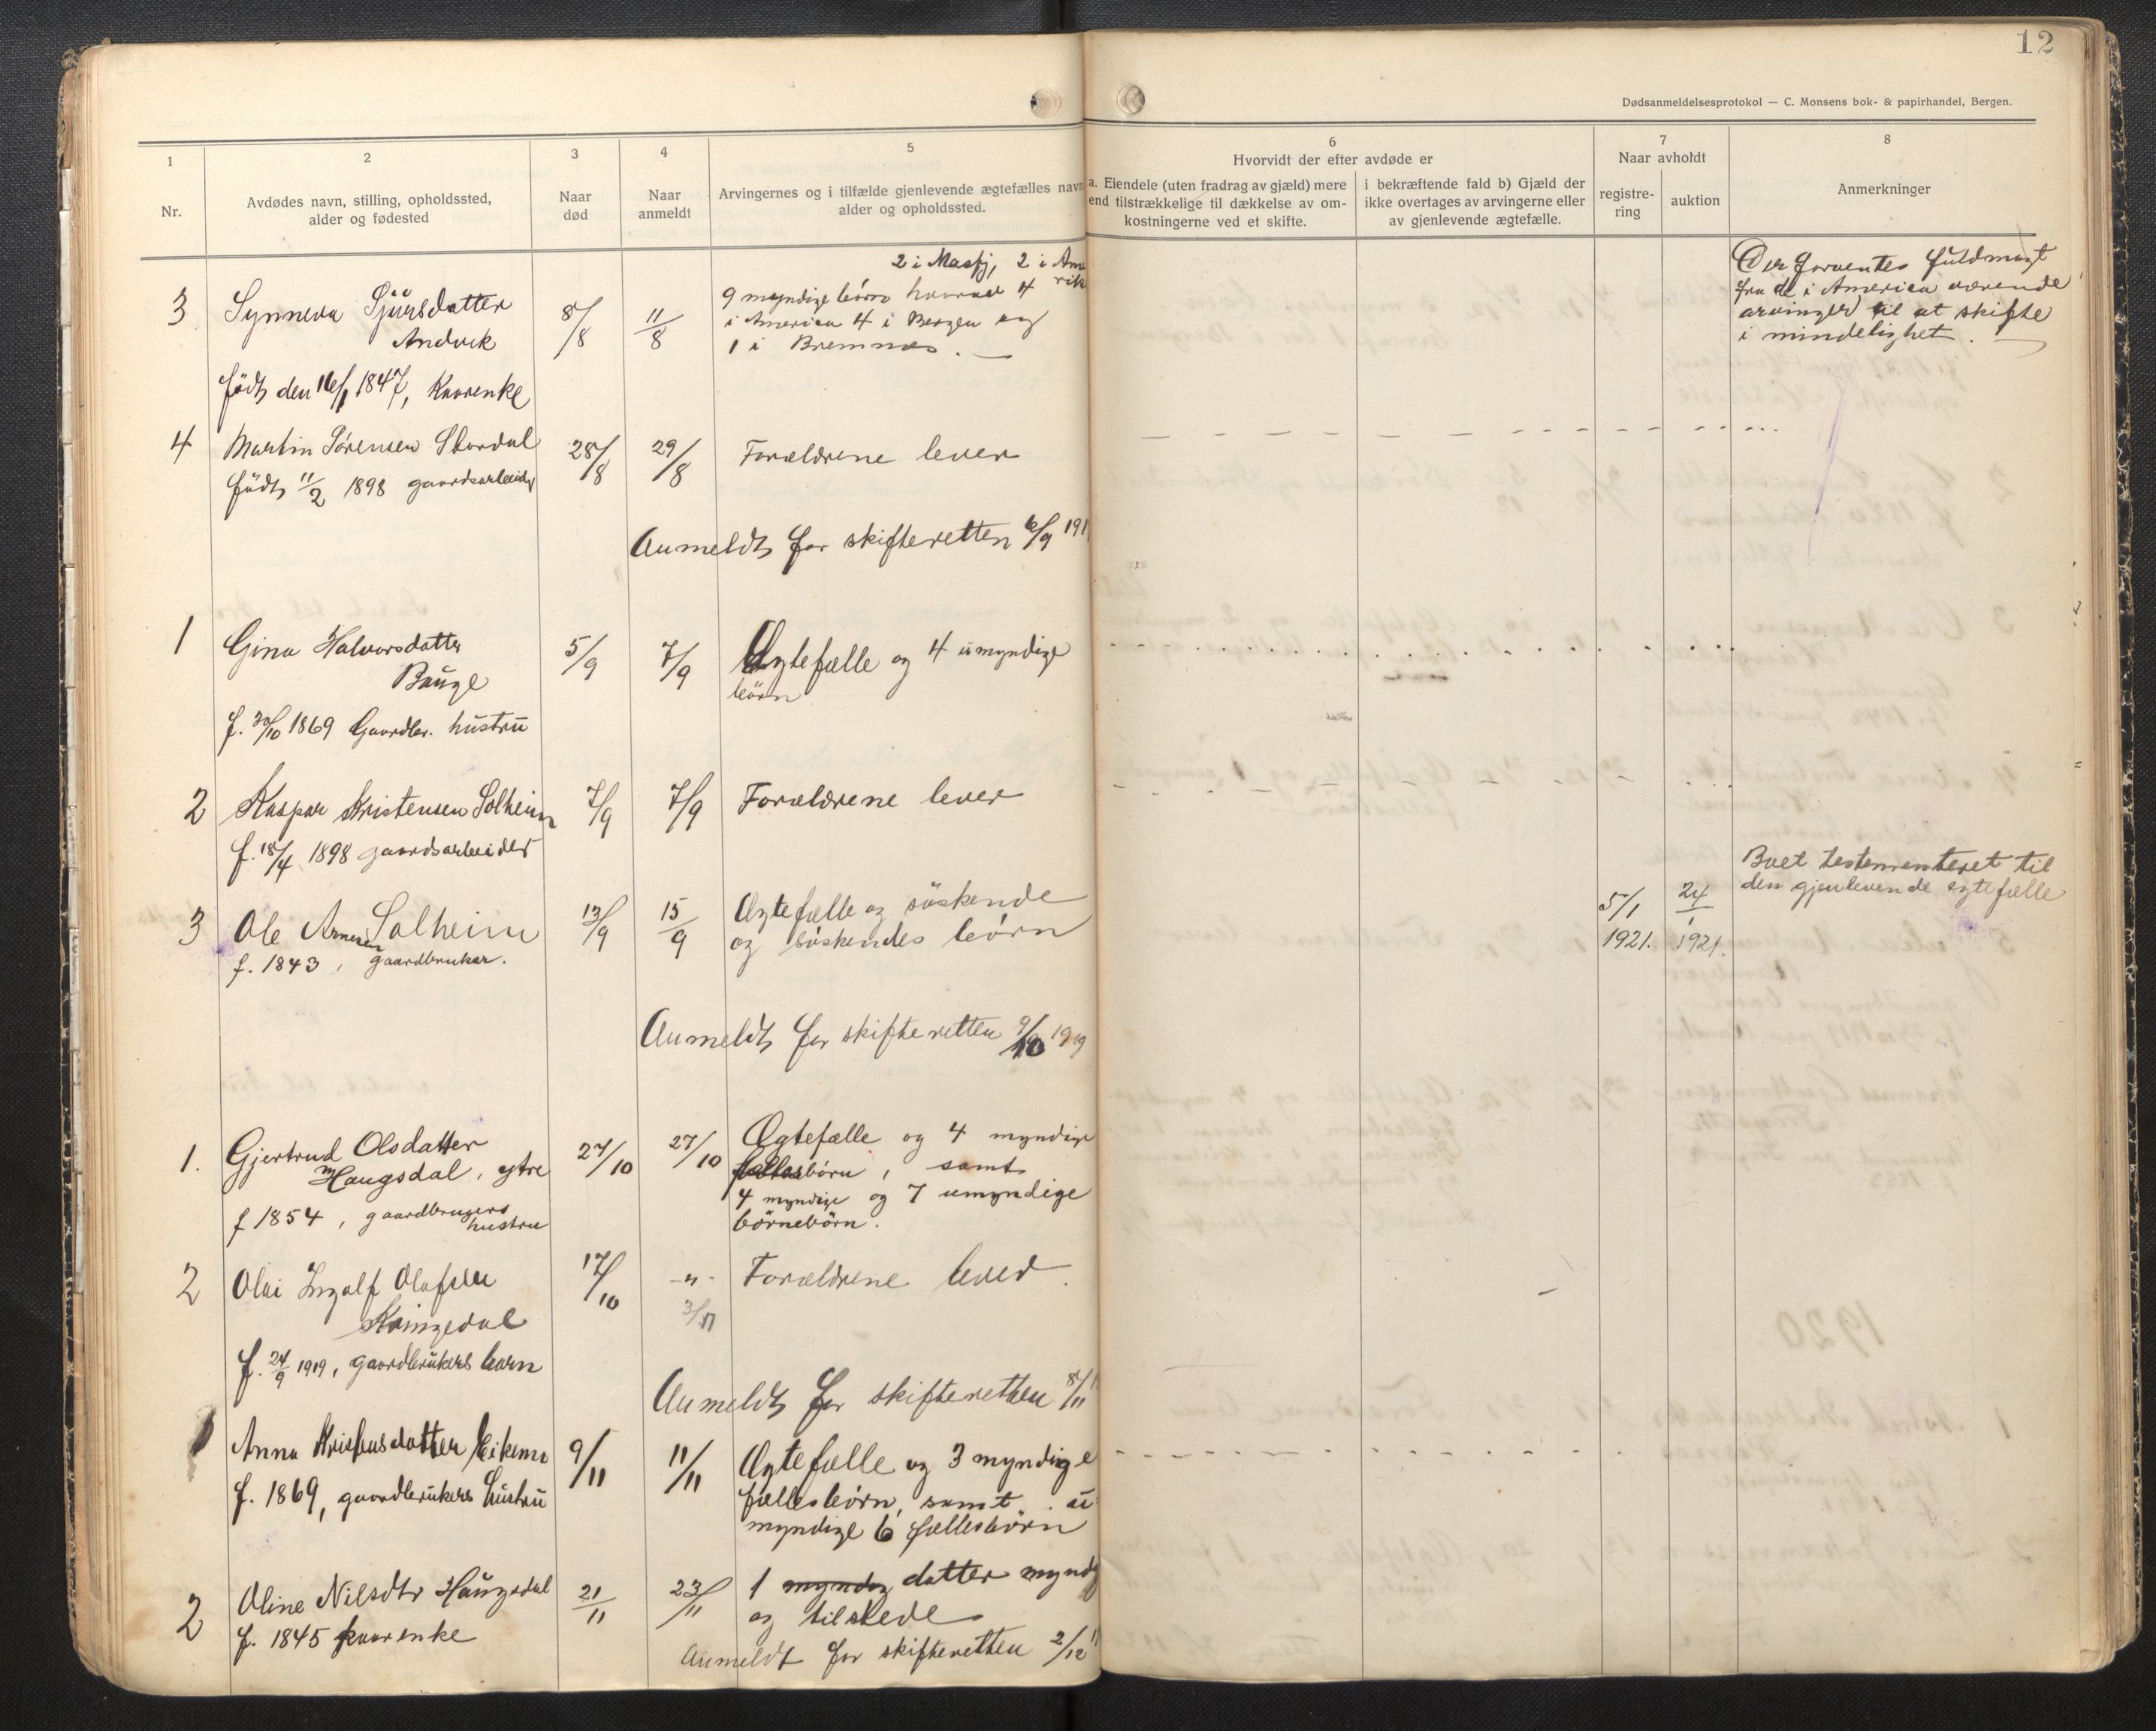 12
Dødsanmeldelsesprotokol — C. Monsens bok- & papirhandel, Bergen.
1
Nr.
2
Avdødes navn, stilling, opholdssted,
alder og fødested
3
Naar
død
4
Naar
anmeldt
5
Arvingernes og i tilfælde gjenlevende ægtefælles navn
alder og opholdssted.
6
Hvorvidt der efter avdøde er
a. Eiendele (uten fradrag av gjæld) mere
end tilstrækkelige til dækkelse av om-
kostningerne ved et skifte.
i bekræftende fald b) Gjæld der
ikke overtages av arvingerne eller
av gjenlevende ægtefælle.
7
Naar avholdt
registre-
ring
auktion
8
Anmerkninger
3
Synneva Sjursdatter
Andvik
født den 16/1 1847, Kaarenke
8/8
11/8
2 i Masfj, 2 i Ame
rik
9 myndige børn hvorav 4
i America 4 i Bergen og
1 i Bremnes.
Der forventes fuldmagt
fra de i America værende
arvinger til at skifte
i mindelighet.
4
Martin Sørensen Stordal
født 11/2 1898 gaardsarbeider
28/8
29/8
Forældrene lever
Anmeldt for skifteretten 6/9 191
1
Gina Halvorsdatter
Bauge
f. 30/10 1869 Gaardbr. hustru
5/9
7/9
Ægtefælle og 4 umyndige
børn
2
Kaspar Kristensen Solheim
f. 18/4 1898 gaardsarbeider
7/9
7/9
Forældrene lever
3
Ole Arnesen Solheim
f. 1843, gaardbruker.
13/9
15/9
Ægtefælle og søskende
og søskendes børn
5/1
1921.
24/1
1921.
Boet testamenteret til
den gjenlevende egtefælle
Anmeldt for skifteretten 9/10 1919
1.
Gjertrud Olsdatter
Haugsdal, ytre
f 1854, gaardbrugers
hustru
27/10
27/10
Ægtefælle og 4 myndige
fællesbørn, samt
4 myndige og 7 umyndige
børnebørn.
2
Olai Ingolf Olafsen
Kringedal
f. 24/9 1919, gaardbrukers barn
17/10
-"-
3/11
Forældrene lever.
Anmeldt for skifteretten 8/11
1
Anna Kristensdatter Eikemo
f. 1869, gaardbrukers hustru
9/11
11/11
Ægtefælle og 3 myndige
fællesbørn, samt u
myndige 6 fællesbørn
2
Oline Nilsdtr Haugsdal
f. 1845 kaarenke
21/11
23/11
1 myndig datter myndig
og tilstede
Anmeldt for skifteretten 2/12